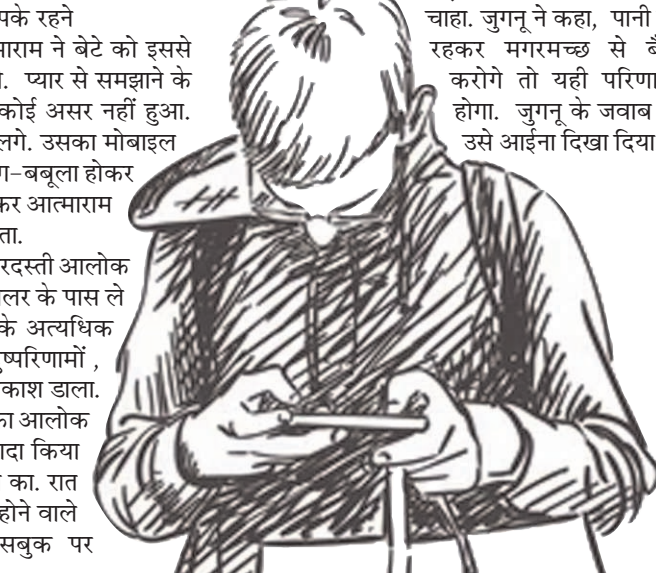 पके रहने
माराम ने बेटे को इससे
प्यार से समझाने के
कोई असर नहीं हुआ.
लगे. उसका मोबाइल
ग-बबूला होकर
कर आत्माराम
ता.
रदस्ती आलोक
लर के पास ले
के अत्यधिक
ष्परिणामों ,
काश डाला.
का आलोक
ादा किया
का. रात
होने वाले
सबुक पर
चाहा. जुगनू ने कहा, पानी
रहकर मगरमच्छ से बै
करोगे तो यही परिणा
होगा. जुगनू के जवाब
उसे आईना दिखा दिया